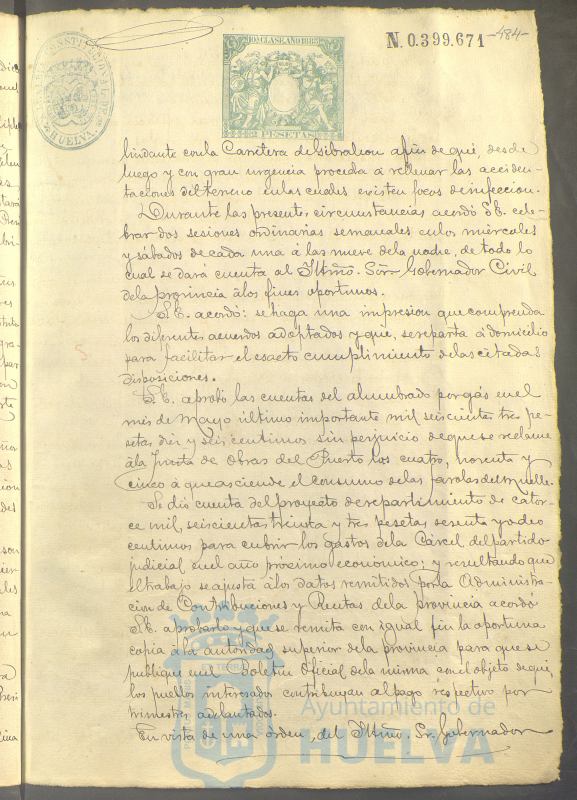 10ª CLASE. AÑO 1885
N. 0.399.671
-484-
2 PESETAS
HUELVA
lindante con la Carretera de Gibraleon a fin de que, desde
luego y con gran urgencia proceda a rellenar los acciden-
taciones del terreno en las cuales existen focos de infeccion.
Durante las presentes circunstancias acordó S.E. cele-
brar dos sesiones ordinarias semanales en los miércoles
y sábados de cada una á las nueve de la noche, de todo lo
cual se dará cuenta al Iltmo. Sor. Gobernador Civil
de la provincia á los fines oportunos.
S.E. acordó: se haga una impresion que comprenda
los diferentes acuerdos adoptados y que, se reparta á domicilio
para facilitar el esacto cumplimiento de las citadas
disposiciones.
S.E. aprobó las cuentas del alumbrado por gás en el
més de Mayo último importante mil seiscientas tres pe-
setas diez y seis centimos sin perjuicio de que se reclame
á la Junta de Obras del Puerto los cuatro, noventa y
cinco á que asciende el consumo de las farolas del muelle.
Se dió cuenta del proyecto de repartimiento de cator-
ce mil, seiscientas treinta y tres pesetas sesenta y
centimos para cubrir los gastos de la Cárcel del partido
judicial en el año próximo económico; y resultando que
el trabajo se ajusta á los datos remitidos por la Administra-
cion de Contribuciones y Rentas de la provincia acordó
S.E. aprobarlo y que se remita con igual fin la oportuna
copia á la autoridad superior de la provincia para que se
publique en el Boletin Oficial de la misma con el objeto de que
los pueblos interesados contribuyan al pago respectivo por
trimestres adelantados.
En vista de una orden, del Iltmo. Sr. Gobernador
Ayuntamiento de
HUELVA